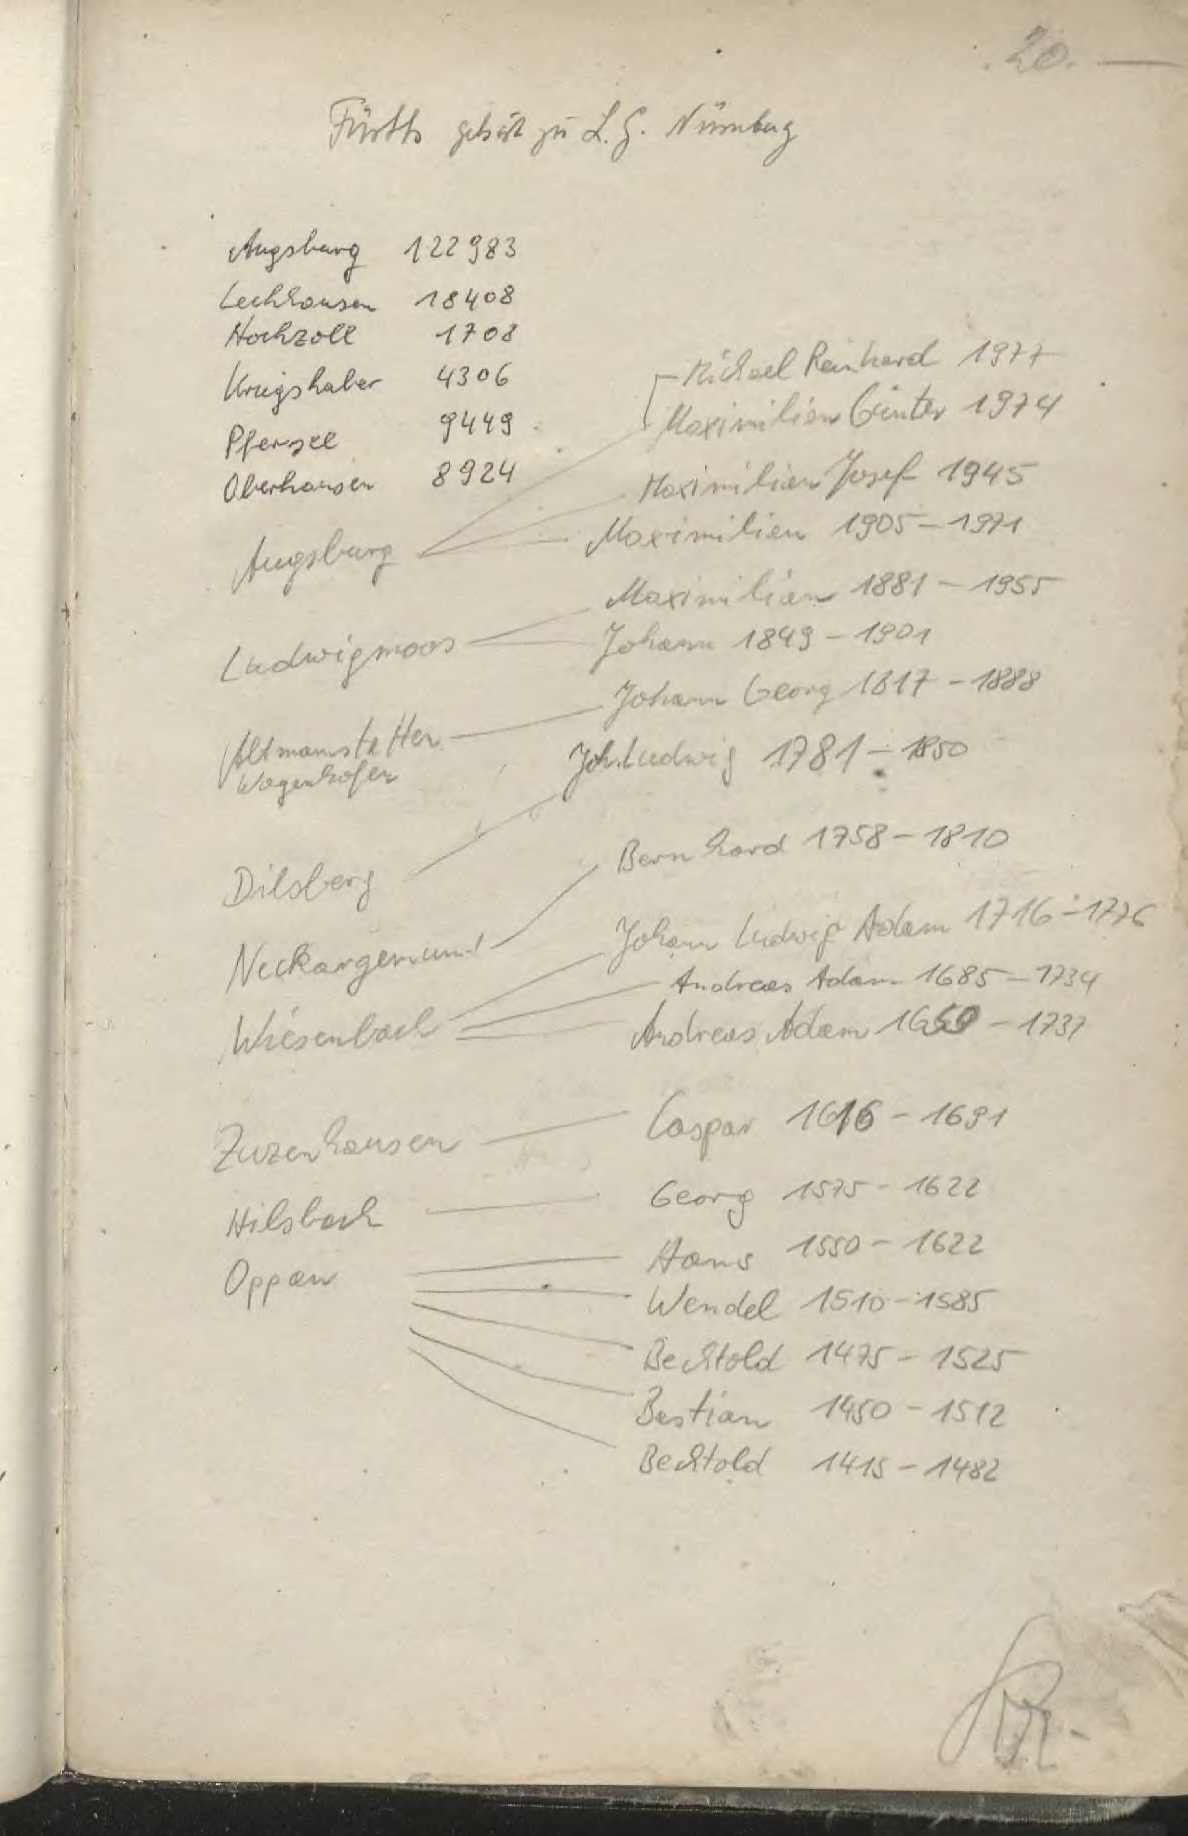 20. —
Fürth gehört zu L. G. Nürnberg
Augsburg 122983
Lechhausen 18408
Hochzoll 1708
Kriegshaber 4306
Pfersee 9449
Oberhausen 8924
Michael Reinhard 1977
Maximilian Günter 1974
Maximilian Josef 1945
Augsburg Maximilian 1905 – 1971
Maximilian 1881 – 1955
Ludwigmoos Johann 1849 – 1901
Johann Georg 1817 – 1888
Altmannstetten
Wagenhofen
Joh. Ludwig 1781 – 1850
Dilsberg
Bernhard 1758 – 1810
Neckargemünd
Johann Ludwig Adam 1716 – 1776
Andreas Adam 1685 – 1734
Wiesenbach Andreas Adam – 1737
Zuzenhausen Caspar 1616 – 1691
Hilsbach Georg 1575 – 1622
Oppau Hans 1550 – 1622
Wendel 1510 – 1585
Bechtold 1475 – 1525
Bastian 1450 – 1512
Bechtold 1415 – 1482